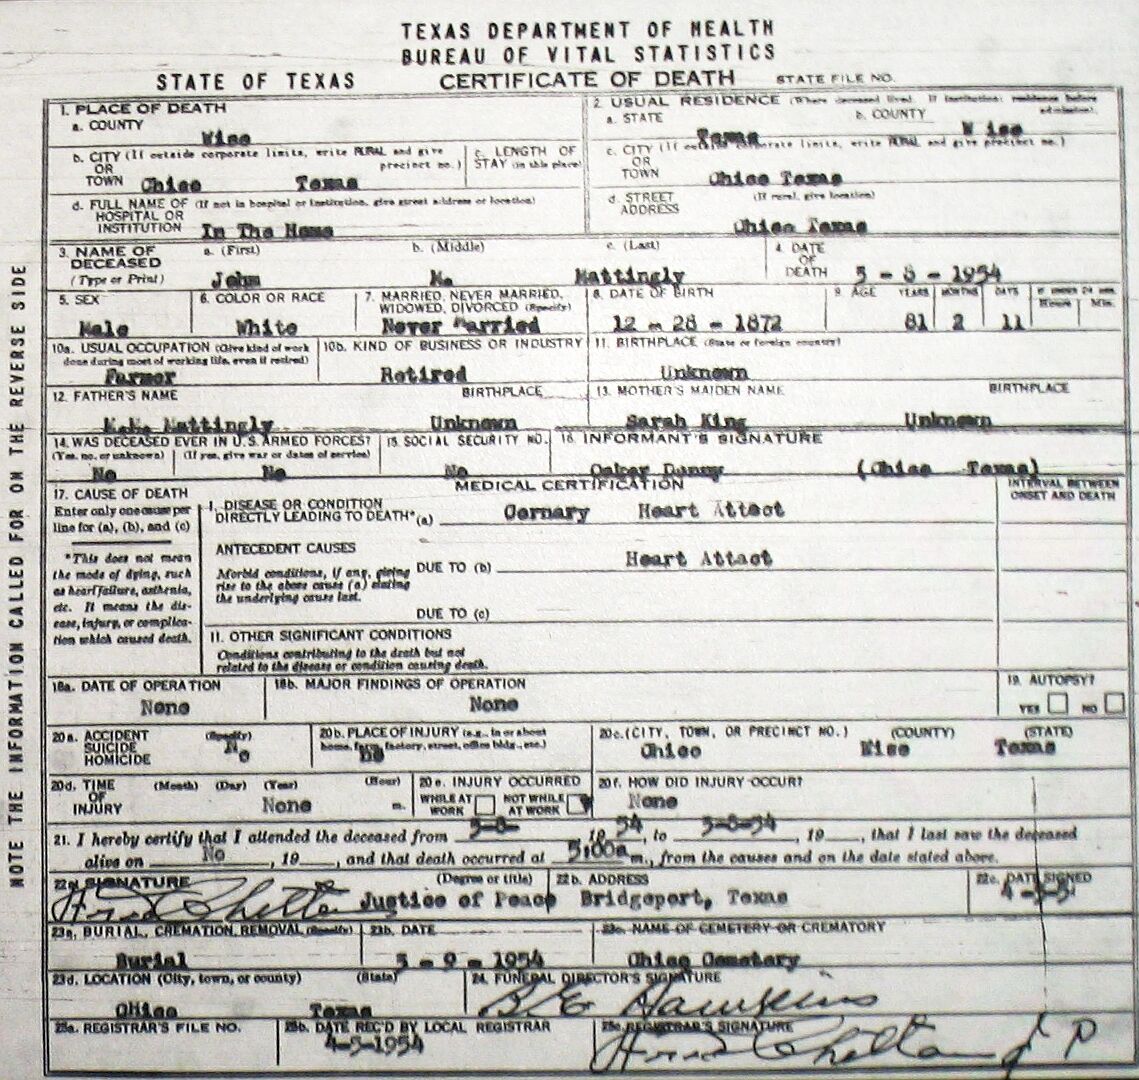 TEXAS DEPARTMENT OF HEALTH
BUREAU OF VITAL STATISTICS
STATE OF TEXAS CERTIFICATE OF DEATH STATE FILE NO.
1. PLACE OF DEATH
a. COUNTY
Wise
2. USUAL RESIDENCE (Where deceased lived. If institution: residence before admission).
a. STATE b. COUNTY
Texas Wise
b. CITY (If outside corporate limits, write RURAL and give precinct no.)
OR
TOWN Chico Texas
c. LENGTH OF
STAY (in this place)
c. CITY (If outside corporate limits, write RURAL and give precinct no.)
OR
TOWN Chico Texas
d. FULL NAME OF (If not in hospital or institution, give street address or location)
HOSPITAL OR
INSTITUTION In The Home
d. STREET (If rural, give location)
ADDRESS
Chico Texas
3. NAME OF DECEASED
(Type or Print)
a. (First) b. (Middle) c. (Last)
John M. Mattingly
4. DATE
OF
DEATH 3 - 8 - 1954
5. SEX
Male
6. COLOR OR RACE
White
7. MARRIED, NEVER MARRIED,
WIDOWED, DIVORCED (Specify)
Never Married
8. DATE OF BIRTH
12 - 28 - 1872
9. AGE YEARS MONTHS DAYS IF UNDER 24 HRS.
Hours Min.
81 2 11
10a. USUAL OCCUPATION (Give kind of work
done during most of working life, even if retired)
Farmer
10b. KIND OF BUSINESS OR INDUSTRY
Retired
11. BIRTHPLACE (State or foreign country)
Unknown
12. FATHER'S NAME BIRTHPLACE
Mattingly Unknown
13. MOTHER'S MAIDEN NAME BIRTHPLACE
Sarah King Unknown
14. WAS DECEASED EVER IN U.S. ARMED FORCES?
(Yes, no, or unknown) (If yes, give war or dates of service)
No No
15. SOCIAL SECURITY NO.
No
16. INFORMANT'S SIGNATURE
Oskar (Chico Texas)
MEDICAL CERTIFICATION
INTERVAL BETWEEN
ONSET AND DEATH
17. CAUSE OF DEATH
Enter only one cause per
line for (a), (b), and (c)
*This does not mean
the mode of dying, such
as heart failure, asthenia,
etc. It means the dis-
ease, injury, or complica-
tion which caused death.
I. DISEASE OR CONDITION
DIRECTLY LEADING TO DEATH* (a) Cornary Heart Attact
ANTECEDENT CAUSES
Morbid conditions, if any, giving
rise to the above cause (a) stating
the underlying cause last.
DUE TO (b) Heart Attact
DUE TO (c)
11. OTHER SIGNIFICANT CONDITIONS
Conditions contributing to the death but not
related to the disease or condition causing death.
18a. DATE OF OPERATION
None
18b. MAJOR FINDINGS OF OPERATION
None
19. AUTOPSY?
YES NO
20a. ACCIDENT (Specify)
SUICIDE
HOMICIDE
No
20b. PLACE OF INJURY (e.g., in or about
home, farm, factory, street, office bldg., etc.)
no
20c. (CITY, TOWN, OR PRECINCT NO.) (COUNTY) (STATE)
Chico Wise Texas
20d. TIME (Month) (Day) (Year) (Hour)
OF
INJURY None m.
20e. INJURY OCCURRED
WHILE AT WORK NOT WHILE AT WORK
20f. HOW DID INJURY OCCUR?
None
21. I hereby certify that I attended the deceased from 3-8- 19 54, to 3-8-54, 19 , that I last saw the deceased
alive on No, 19 , and that death occurred at 5:00a m., from the causes and on the date stated above.
22a. SIGNATURE (Degree or title)
Fred Shelton Justice of Peace
22b. ADDRESS
Bridgeport, Texas
22c. DATE SIGNED
4-5-54
23a. BURIAL, CREMATION REMOVAL (Specify)
Burial
23b. DATE
3 - 9 - 1954
23c. NAME OF CEMETERY OR CREMATORY
Chico Cemetery
23d. LOCATION (City, town, or county) (State)
CHico Texas
24. FUNERAL DIRECTOR'S SIGNATURE
B E Hawkins
25a. REGISTRAR'S FILE NO.
25b. DATE REC'D BY LOCAL REGISTRAR
4-5-1954
25c. REGISTRAR'S SIGNATURE
Fred Shelton J P
NOTE THE INFORMATION CALLED FOR ON THE REVERSE SIDE